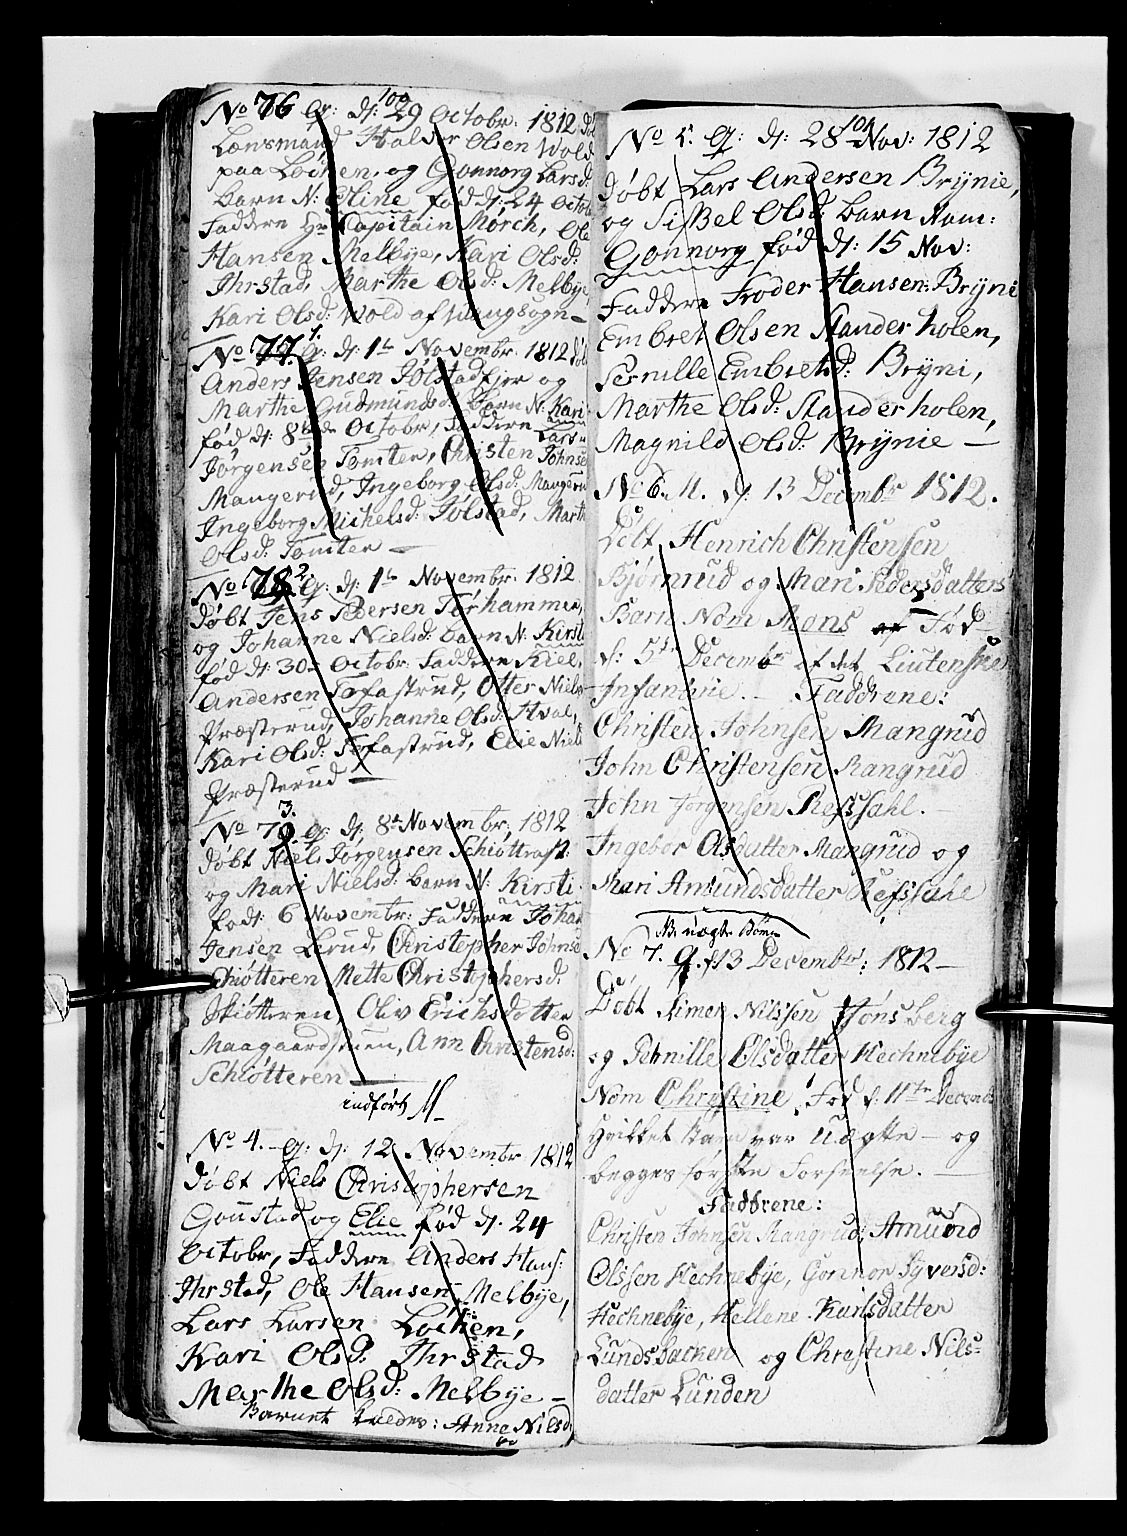 100
No 76 G: d: 29 Octobr: 1812
Lænsmand Halder Olsen Wold
paa Løchen, og Gonnorg Larsd:
Barn N: Oline fød d: 24 Octo
Faddere Hr Capitain Mørch, Ole
Hansen Melbÿe, Kari Olsd:
Ihrstad, Marthe Olsd: Melbÿe
Kari Olsd: Wold af Waangsogn
1.
No 77. G: d: 1te Novembr: 1812
Anders Jensen Jølstadejer og
Marthe Gudmundsd: Barn N: Kari
fød d: 8de Octobr, Faddere Lars
Jørgensen Tomter, Christen Johnse
Mangerud, Ingeborg Olsd: Mangeru
Ingeborg Michelsd: Jølstad, Marth
Olsd: Tomter
2
No 78 G: d: 1te Novembr: 1812
døbt Jens Pedersen Torhammer,
og Johanne Nielsd: Barn N: Kirsti
fød d: 30 Octobr: Faddere Kiel
Andersen Tofastrud, Otter Niels
Præsterud, Johanne Olsd: Hval,
Kari Olsd: Tofastrud, Elie Niels
Præsterud
3.
No 79 G: d: 8de Novembr, 1812
døbt Niels Jørgensen Schiøttraft:
og Mari Nielsd: Barn N: Kirsti
født: 6 Novembr: Faddere Johan
Jensen Lerud, Christopher Johnse
Schiøtteren Mette Christophersd:
Skiøtteren, Oliv Erichsdotter
Maagaardsruen, Ann Christensd:
Schiøtteren
indført
No 4. G: d: 12 Novembr 1812
døbt Niels Christophersen
Gonstad og Elie fød d. 24
Octobr, Faddere Anders Hans:
Ihrstad, Ole Hansen Melbÿe,
Lars Larsen Lochen,
Kari Olsd: Ihrstad
Marthe Olsd: Melbÿe
Barnet kaldes: Anne Nilsd:
101
No 5. G: d: 28 Nov: 1812
døbt Lars Andersen Brÿnie,
og Sissel Olsd: Barn Nam:
Gonnorg fød d: 15 Nov:
Faddere Troder Hansen: Brÿni
Embret Olsen Standerholen,
Pernille Embretsd: Brÿni,
Marthe Olsd: Standerholen,
Magnild Olsd: Brÿnie
No 6. N. d: 13 Decembr 1812.
Døbt Henrich Christensen
Bjørnrud og Mari Pedersdatters
Barn Nom Mons Fød
d: 5te Decembr af det
Infanterie. Faddrene:
Christen Johnsen Mangrud
John Christensen Mangrud
John Jørgensen Refssahl.
Ingebor Olsdatter Mangrud og
Mari Amundsdatter Refssahl
NB uægte Børn
No 7. G. d 13 Decembr: 1812
Døbt Simen Nilssen Tønsberg
og Pernille Olsdatter Hechnebÿe
Nom Christine, Fød d: 11te Decemb
hvilket Barn var uægte og
begges første Forseelse.
Faddrene:
Christen Johnsen Mangrud, Amund
Olssen Hechnebÿe, Gonnor Syversd:
Hechnebÿe, Hellene Karlsdatter
Lundsbacken og Christine Nils
datter Lunden